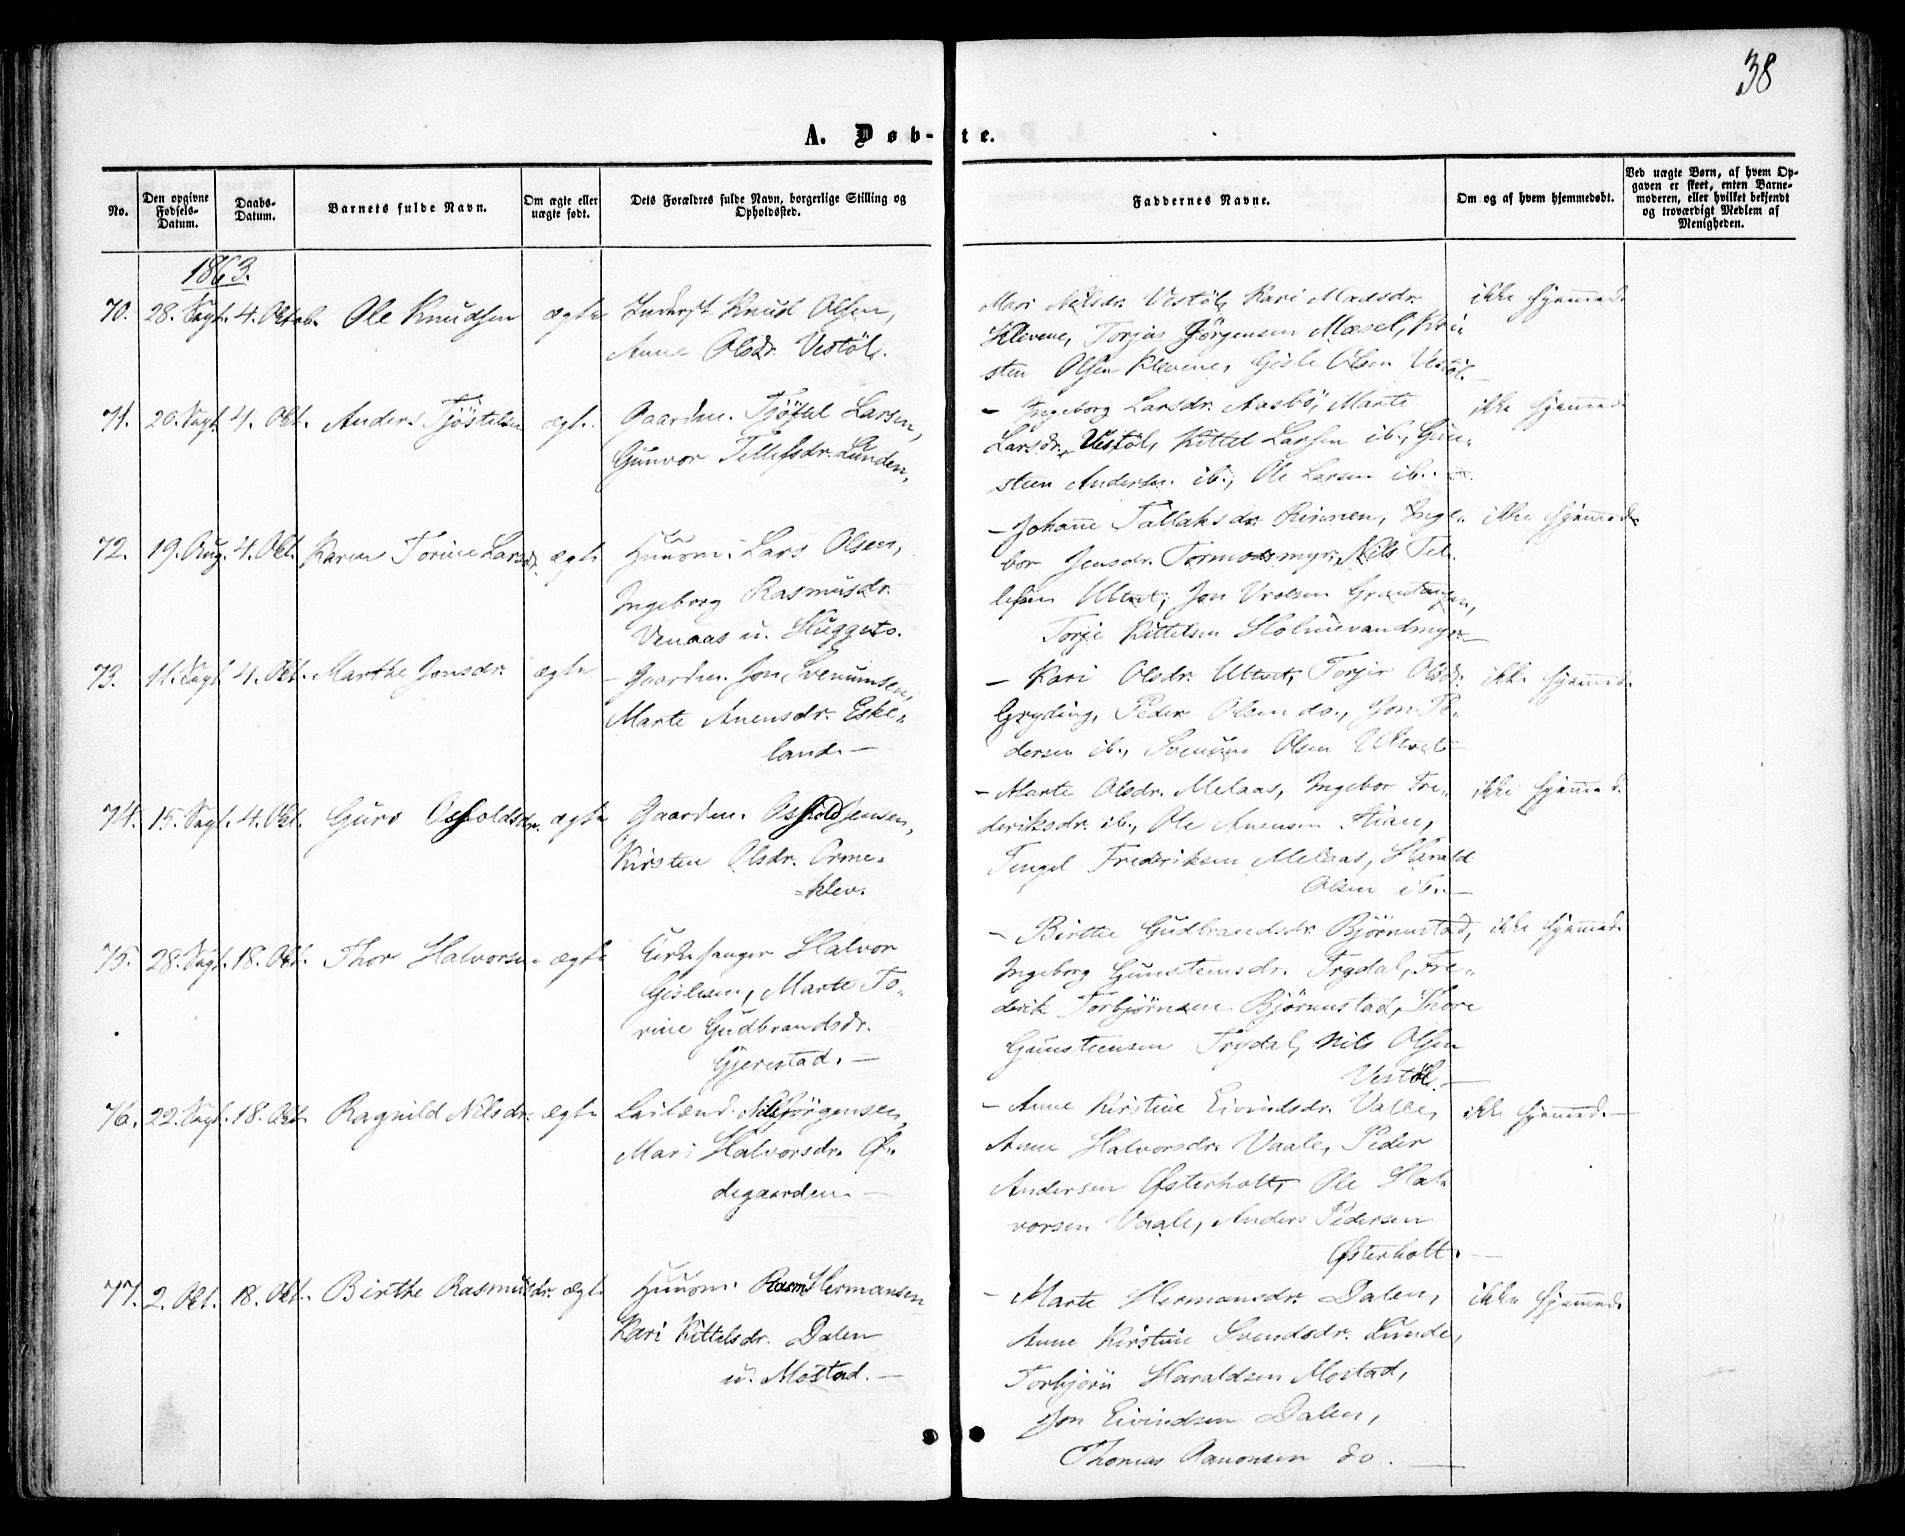 38
A. Døb-te.
No.
Den opgivne Fødsels-Datum.
Daabs-Datum.
Barnets fulde Navn.
Om ægte eller uægte født.
Dets Forældres fulde Navn, borgerlige Stilling og Opholdssted.
Faddernes Navne.
Om og af hvem hjemmedøbt.
Ved uægte Børn, af hvem Opgaven er skeet, enten Barnemoderen, eller hvilket bekjendt og troværdigt Medlem af Menigheden.
1863.
70. 28. Sept. 4. Octob. Ole Knudsen ægte
Inderst. Knud Olsen,
Anne Olsdr. Vestøl.
Mari Nilsdr. Vestøl, Kari Madsdr.
Klevene, Torjus Jörgensen Mæsel, Kri-
sten Olsen Klevene, Gisle Olsen Vestöl.
ikke hjemmed.
71. 20. Sept. 4. Okt. Anders Tjöstelsen ægte.
Gaardm. Tjöstel Larsen,
Gunvor Tellefsdr. Lunden,
- Ingeborg Larsdr. Aasbö, Marte
Larsdr. Vestöl, Kittel Larsen ib., Gun-
steen Andersen ib., Ole Larsen ib.
ikke hjemmed.
72. 19. Aug. 4. Okt. Karen Torine Larsdr. ægte
Huusm. Lars Olsen,
Ingeborg Rasmusdr.
Venaas u. Skuggeto.
- Johanne Tallaksdr. Rinnen, Inge-
bor Jensdr. Tormodsmyr, Nils Tel-
lefsen Ulltvet, Jon Vrolsen Grantangen,
Torje Kittelsen Holmevandmyr. -
ikke hjemmed.
73. 11. Sept. 4. Okt. Marthe Jonsdr. ægte
- Gaardm. Jon Svenumsen,
Marte Anensdr. Eske-
land. -
- Kari Olsdr. Ulltvet, Torjer Olsdr.
Gryting, Peder Olsen do., Jon Pe-
dersen ib., Svenum Olsen Ulltveit
ikke hjemmed.
74. 15. Sept. 4. Okt. Guro Osholdsdr. ægte
Gaardm. Oshold Jensen,
Kirsten Olsdr. Orme-
-klev.
- Marte Olsdr. Melaas, Ingebor Fre-
deriksdr. ib., Ole Anensen Stian,
Tengel Frederiksen Melaas, Harald
Olsen ib. -
ikke hjemmed.
75. 28. Sept. 18. Okt. Thor Halvorsen ægte
Kirkesanger Halvor
Gislesen, Marte To-
rine Gudbrandsdr.
Gjerestad. -
- Birthe Gudbrandsdr. Björnustad,
Ingeborg Gunsteensdr. Trydal, Fre-
derik Torbjörnsen Björnustad, Thore
Gunsteensen Trydal, Nils Olsen
Vestöl. -
ikke hjemmed.
76. 22. Sept. 18. Okt. Ragnild Nilsdr. ægte
Leilænd. Nils Jörgensen,
Mari Halvorsdr. Ø-
degaarden. -
- Anne Kirstine Eivindsdr. Valle,
Anne Halvorsdr. Vaale, Peder
Andersen Østerholt, Ole Hal-
vorsen Vaale, Anders Pedersen
Østerholt. -
ikke hjemmed. -
77. 2. Okt. 18. Okt. Birthe Rasmusdr. ægte
Huusm. Rasm Hermansen
Kari Kittelsdr. Dalen
u. Mostad. -
- Marte Hermansdr. Dalen,
Anne Kirstine Svendsdr. Lunde,
Torbjörn Haraldsen Mostad,
Jon Eivindsen Dalen,
Thomas Aanonsen do. -
ikke hjemmed.